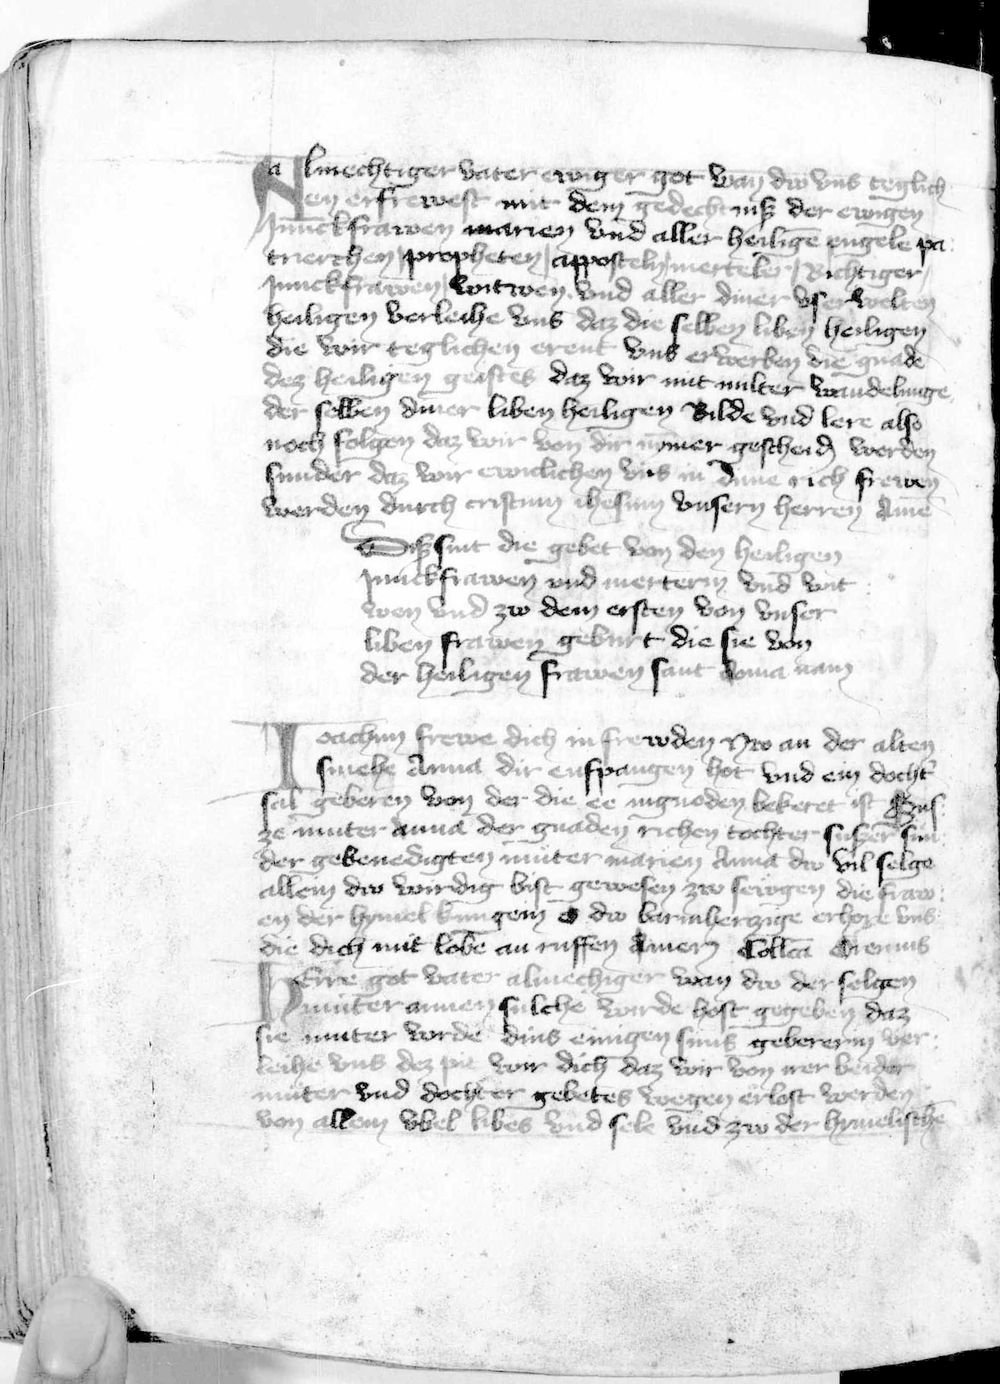 almechtiger vater ewiger got wan dw vns teglich
en erfrewest mit dem gedechtniß der ewigen
Junckfrawen marien vnd aller heilige engele pa:
trierchen / propheten / apposteln / merteler / Bichtiger /
Junckfrawen / witwen vnd aller diner vserwelten
heiligen verleihe vns daz die selben liben heiligen
die wir teglichen erent vns erwerben die gnade
dez heiligen geistes daz wir mit milter wandelunge
der selben diner liben heiligen Bilde vnd lere also
noch folgen daz wir von dir nymer gescheid werden
sunder daz wir ewiclichen vns in dine rich frewen
werden durch cristum ihesum vnsern herren Ame
Diß sint die gebet von den heiligen
Junckfrawen vnd merterin vnd wit:
wen vnd zw dem ersten von vnser
liben frawen geburt die sie von
der heiligen frawen sant Anna nam
Ioachim frewe dich in frewden Nw an der alten
smehe Anna dir enspangen hot vnd ein docht
sal geberen von der die ee in gnoden bekeret ist Sus:
ze muter anna der gnaden richen tochter suszer sun
der gebenedigten muter marien Anna dw vil selge
allein dw wirdig bist gewesen zw sewgen die fraw:
en der hymel kungein o dw barmherzige erhore vns
die dich mit lobe an ruffen Amen Collca Oremus
HErre got vater almechiger wan dw der selgen
muter annen sulche wirde host gegeben daz
sie muter worde dins einigen suns gebererin ver:
leihe vns dez pit wir dich daz wir von irer beider
muter vnd dochter gebetes wegen erlost werden
von allem vbel libes vnd sele vnd zw der hymelische